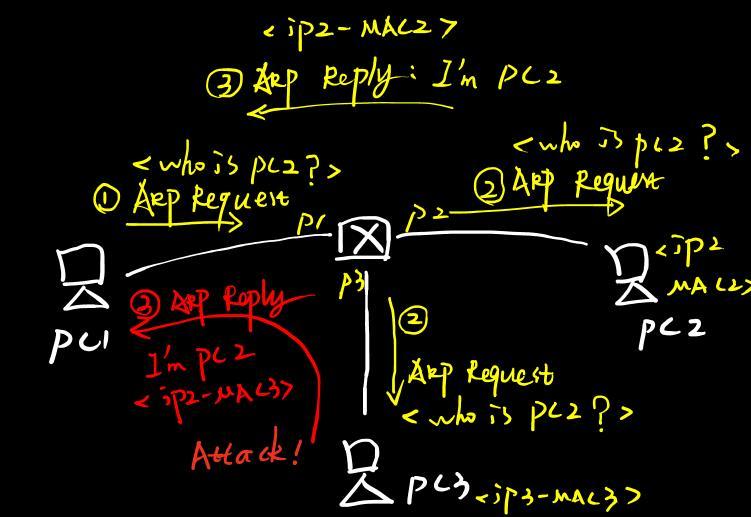 <ip2-MAC2>
③ ARP Reply: I'm PC2
<who is pc2?>
① ARP Request
<who is pc2?>
② ARP Request
p1
p2
p3
PC1
<ip2
MAC2>
PC2
③ ARP Reply
I'm pc2
<ip2-MAC3>
Attack!
②
ARP Request
<who is pc2?>
PC3 <ip3-MAC3>